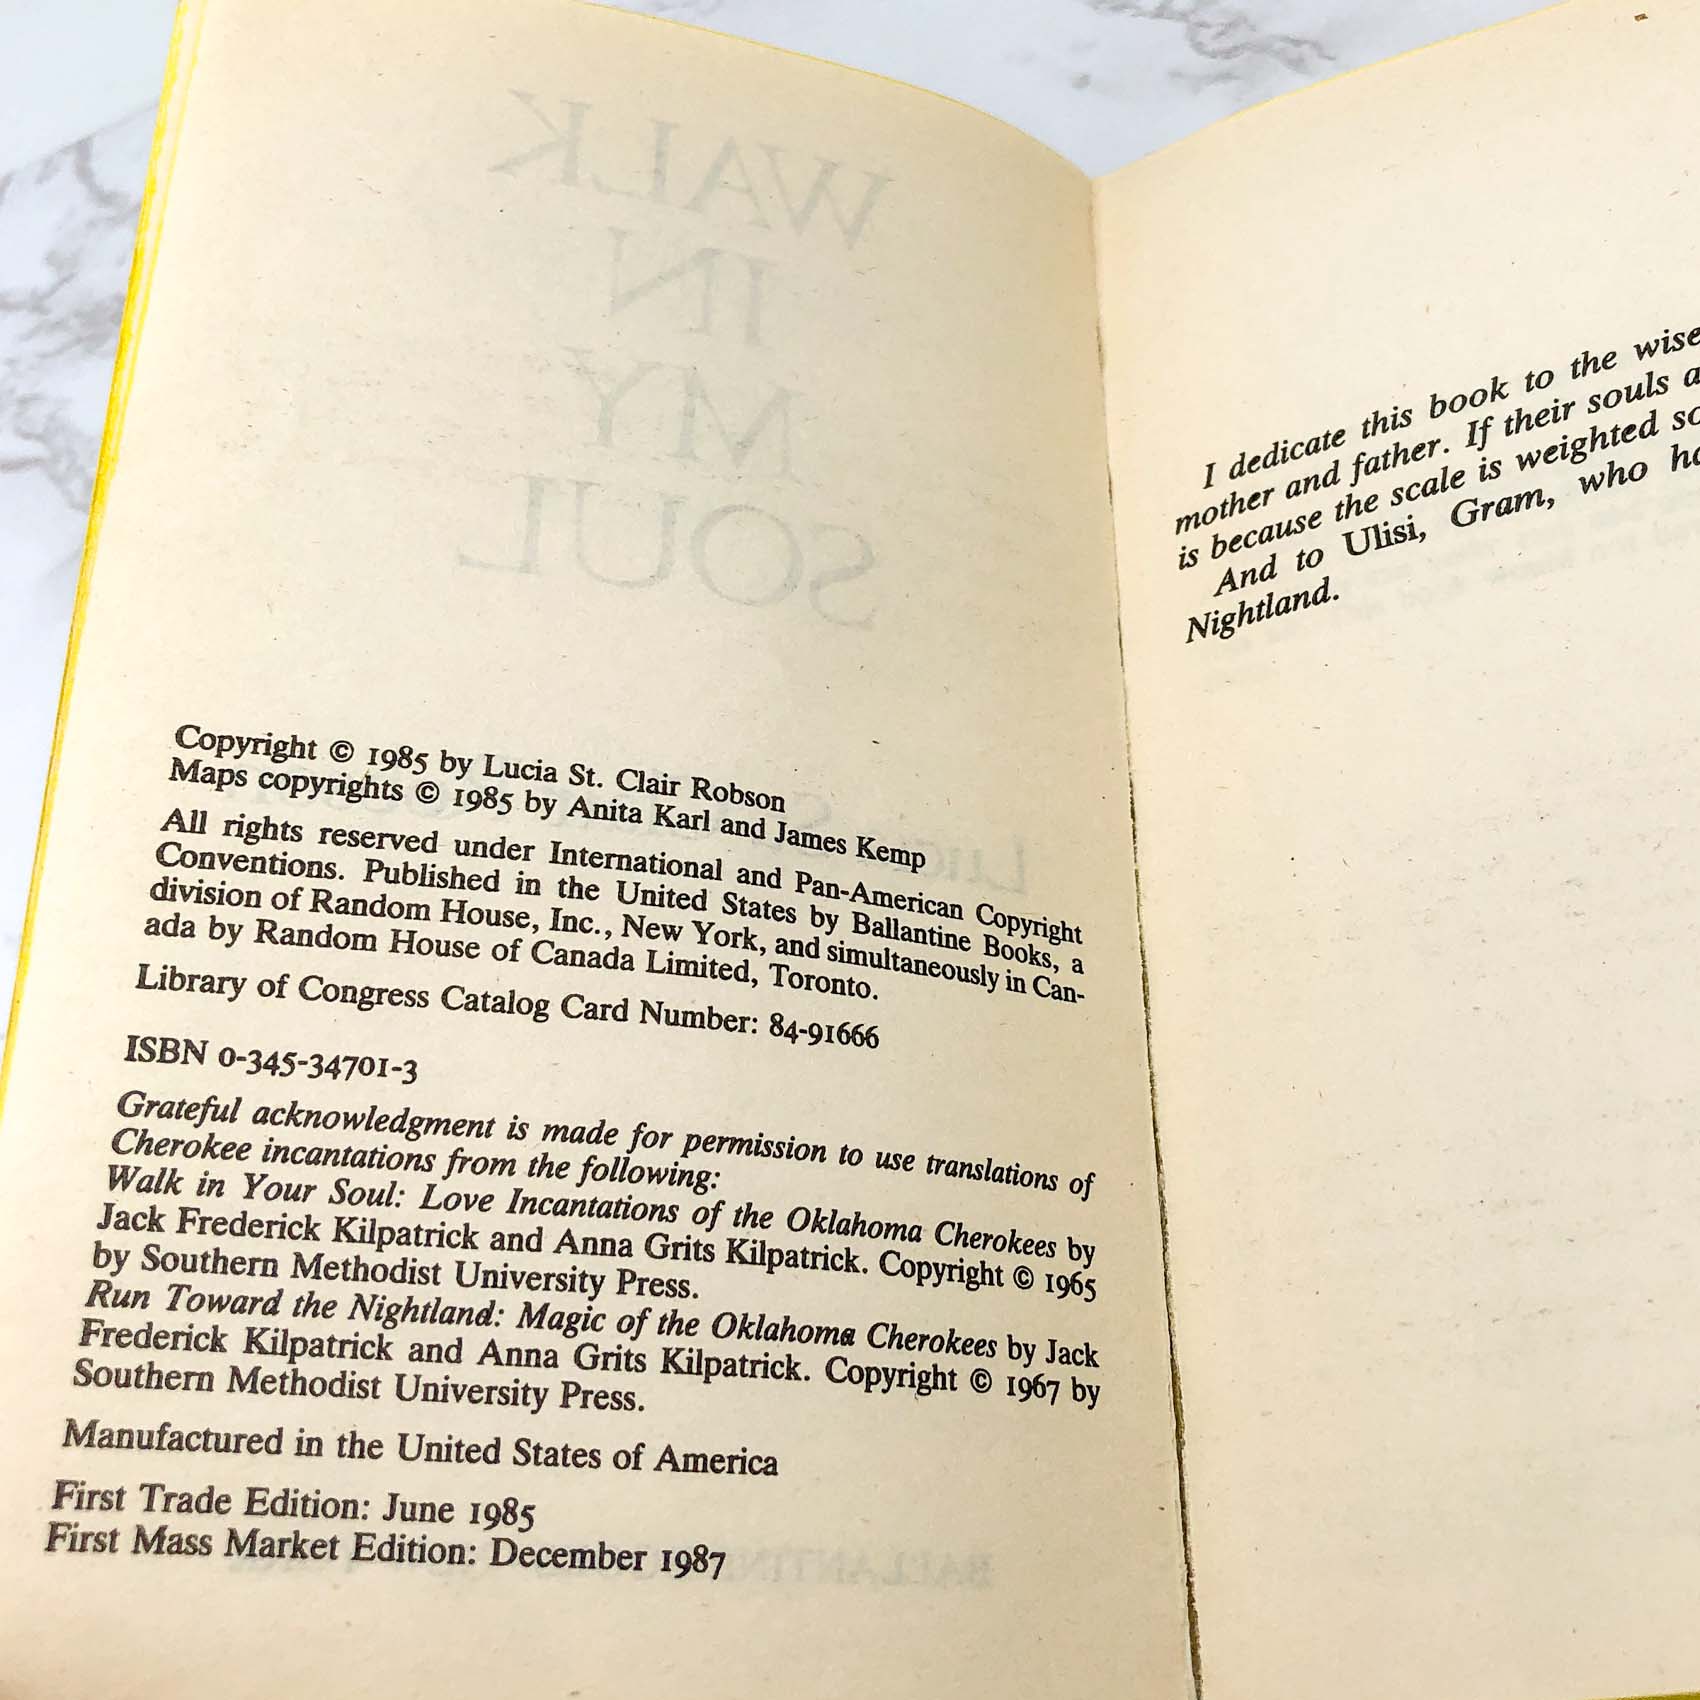 WALK
IN
MY
SOUL
Copyright © 1985 by Lucia St. Clair Robson
Maps copyrights © 1985 by Anita Karl and James Kemp
All rights reserved under International and Pan-American Copyright
Conventions. Published in the United States by Ballantine Books, a
division of Random House, Inc., New York, and simultaneously in Can-
ada by Random House of Canada Limited, Toronto.
Library of Congress Catalog Card Number: 84-91666
ISBN 0-345-34701-3
Grateful acknowledgment is made for permission to use translations of
Cherokee incantations from the following:
Walk in Your Soul: Love Incantations of the Oklahoma Cherokees by
Jack Frederick Kilpatrick and Anna Grits Kilpatrick. Copyright © 1965
by Southern Methodist University Press.
Run Toward the Nightland: Magic of the Oklahoma Cherokees by Jack
Frederick Kilpatrick and Anna Grits Kilpatrick. Copyright © 1967 by
Southern Methodist University Press.
Manufactured in the United States of America
First Trade Edition: June 1985
First Mass Market Edition: December 1987
I dedicate this book to the wise
mother and father. If their souls a
is because the scale is weighted so
And to Ulisi, Gram, who ha
Nightland.